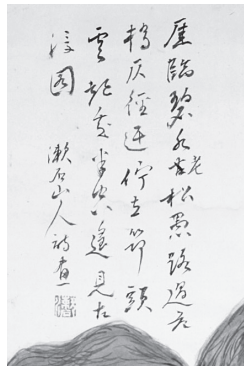 厓臨碧水老松愚路過危
橋仄徑迂佇立筇頭
雲起處半空遙見古
浮圖
漱石山人詩画